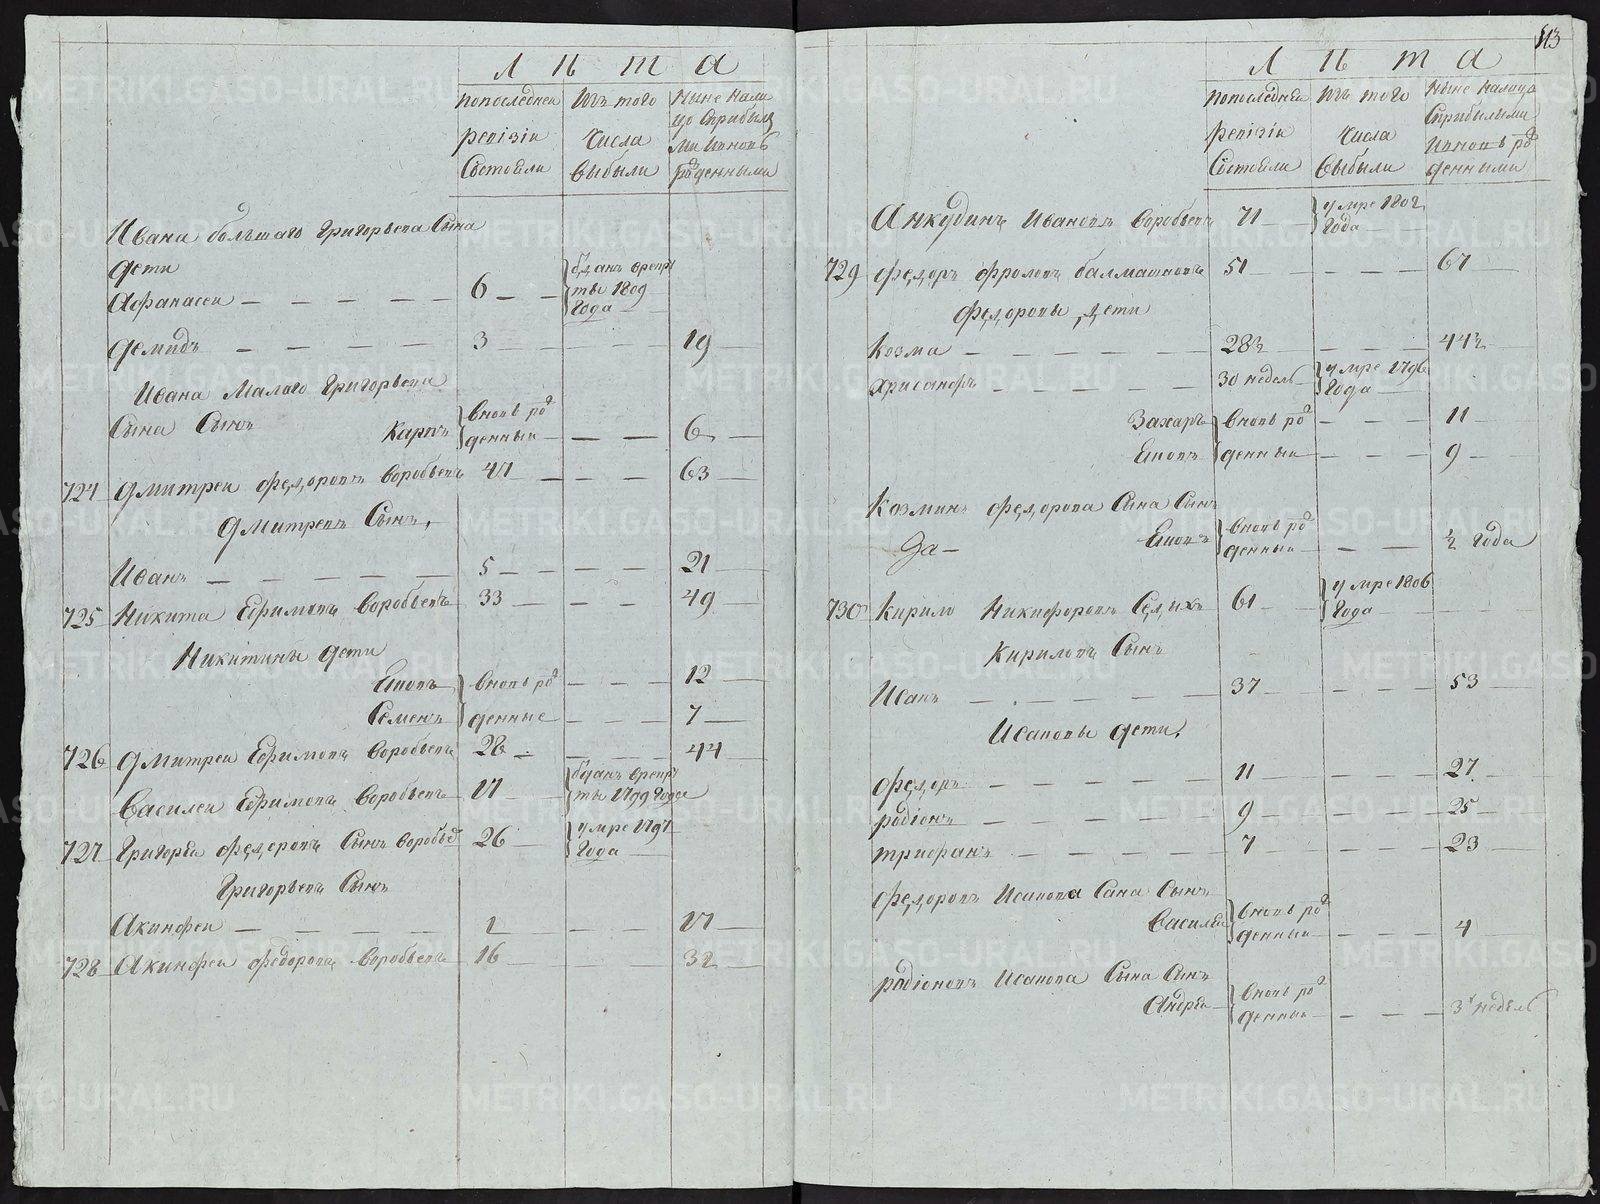 Лѣта
Попоследней ревизiи состояли
Изъ того числа выбыли
Ныне налицо с прибылыми и вновь рожденными
Ивана большаго Григорьева Сына
дети
Афанасеи — 6 — отданъ в рекруты 1809 Года
Демидъ — 3 — 19
Ивана Малаго Григорьева
Сына Сынъ Карпъ вновь рожденныи — 6
724 Дмитреи Федоровъ Воробьевъ 47 — 63
Дмитревъ Сынъ
Иванъ — 5 — 21
725 Никита Ефимовъ Воробьевъ 33 — 49
Никитины дети
Вновь рожденные — 12
Семенъ — 7
726 Дмитреи Ефимовъ Воробьевъ 28 — 44
Василеи Ефимовъ Воробьевъ 17 отданъ в рекруты 1799 Года
727 Григореи Федоровъ Сынъ Воробьев 26 умре 1797 Года
Григорьевъ Сынъ
Акинфеи — 1 — 17
728 Акинфеи Федоровъ Воробьевъ 16 — 32
113
Лѣта
Попоследней ревизiи состояли
Изъ того числа выбыли
Ныне налицо с прибылыми и вновь рожденными
Анкудинъ Ивановъ Воробьевъ 71 умре 1802 Года
729 Федоръ Фроловъ Балмашновъ 51 — 67
Федоровы дети
Козма — 28½ — 44½
Хрисанфъ — 30 недель умре 1796 Года
Захаръ вновь рожденныи — 11
9
Козминъ Федорова Сына Сынъ
вновь рожденныи — ½ года
730 Кирило Никифоровъ Седыхъ 61 умре 1806 Года
Кириловъ Сынъ
Исакъ — 37 — 53
Исаковы дети
Федоръ — 11 — 27
Родiонъ — 9 — 25
Трифанъ — 7 — 23
Федоровъ Исакова Сына Сынъ
Василеи вновь рожденныи — 4
Родiоновъ Исакова Сына Сынъ
Андреи вновь рожденныи — 3 недель
METRIKI.GASO-URAL.RU